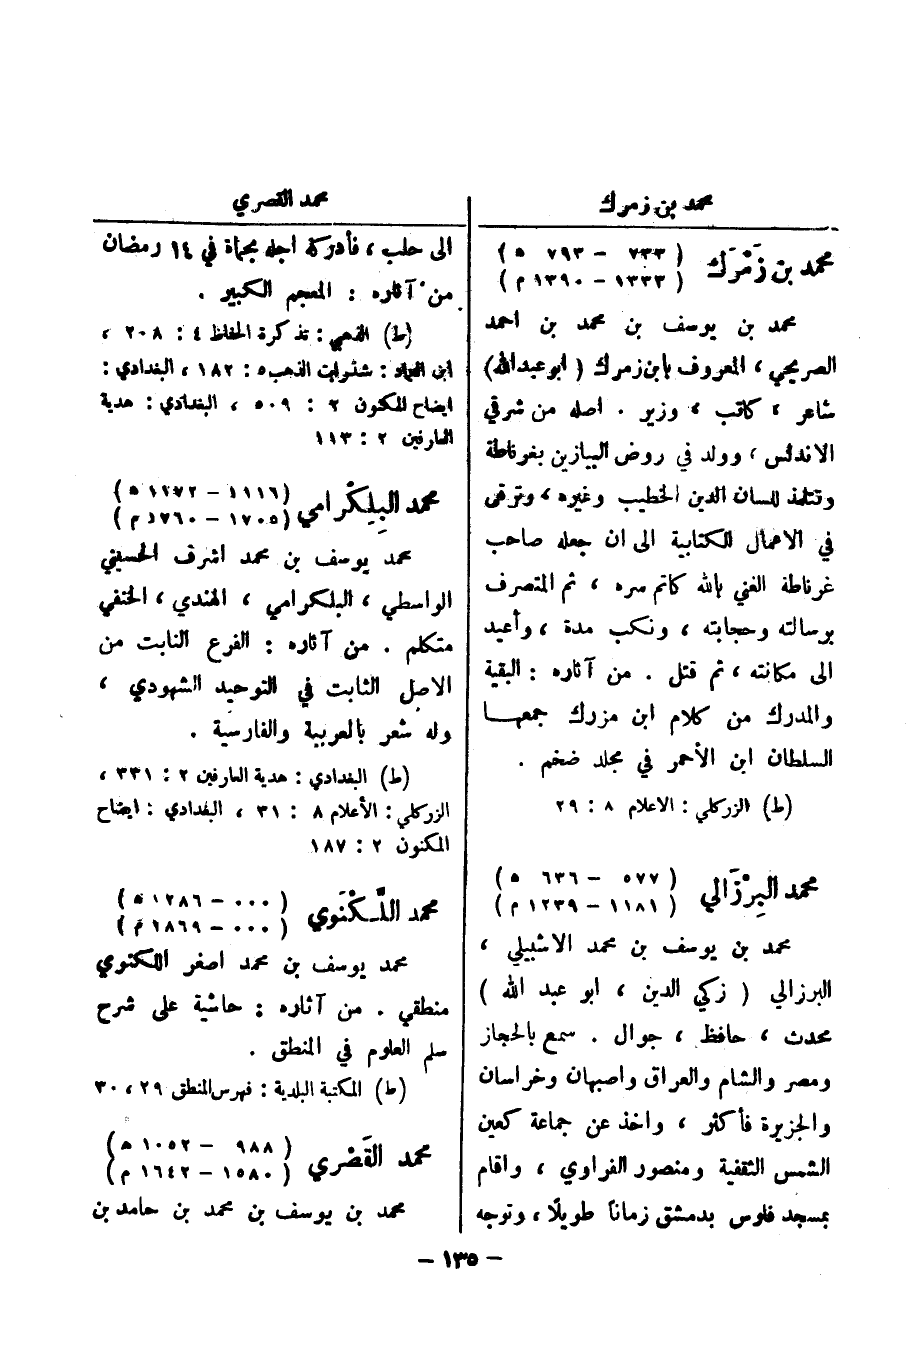 محمد بن زمرك
محمد بن زَمْرَك ( ٧٣٣ - ٧٩٣ ه )
( ١٣٣٣ - ١٣٩٠ م )
محمد بن يوسف بن محمد بن احمد
الصريحي ، المعروف بابن زمرك ( ابو عبدالله )
شاعر ، كاتب ، وزير . اصله من شرقي
الاندلس ، وولد في روض البيازين بغرناطة
وتتلمذ للسان الدين الخطيب وغيره ، وترقى
في الاعمال الكتابية الى ان جعله صاحب
غرناطة الغني بالله كاتم سره ، ثم المتصرف
برسالته وحجابته ، ونكب مدة ، وأعيد
الى مكانته ، ثم قتل . من آثاره : البقية
والمدرك من كلام ابن مزرك جمعها
السلطان ابن الأحمر في مجلد ضخم .
(ط) الزركلي : الاعلام ٨ : ٢٩
محمد البِرْزَالي ( ٥٧٧ - ٦٣٦ ه )
( ١١٨١ - ١٢٣٩ م )
محمد بن يوسف بن محمد الاشبيلي ،
البرزالي ( زكي الدين ، ابو عبد الله )
محدث ، حافظ ، جوال . سمع بالحجاز
ومصر والشام والعراق واصبهان وخراسان
والجزيرة فأكثر ، واخذ عن جماعة كعين
الشمس الثقفية ومنصور الفراوي ، واقام
بمسجد فلوس بدمشق زماناً طويلًا ، وتوجه
محمد القصري
الى حلب ، فأدركه اجله بحماة في ١٤ رمضان
من آثاره : المعجم الكبير .
(ط) الذهبي : تذكرة الحفاظ ٤ : ٢٠٨ ،
ابن العماد : شذرات الذهب ٥ : ١٨٢ ، البغدادي :
ايضاح المكنون ٢ : ٥٠٩ ، البغدادي : هدية
العارفين ٢ : ١١٣
محمد البِلِكْرامي ( ١١١٦ - ١٢٧٢ ه )
( ١٧٠٥ - ١٧٦٠ م )
محمد يوسف بن محمد اشرف الحسيني
الواسطي ، البلكرامي ، الهندي ، الحنفي
متكلم . من آثاره : الفرع النابت من
الاصل الثابت في التوحيد الشهودي ،
وله شعر بالعربية والفارسية .
(ط) البغدادي : هدية العارفين ٢ : ٣٣١ ،
الزركلي : الأعلام ٨ : ٣١ ، البغدادي : ايضاح
المكنون ٢ : ١٨٧
محمد اللَّكْنَوي ( ٠٠٠ - ١٢٨٦ ه )
( ٠٠٠ - ١٨٦٩ م )
محمد يوسف بن محمد اصغر اللكنوي
منطقي . من آثاره : حاشية على شرح
سلم العلوم في المنطق .
(ط) المكتبة البلدية : فهرس المنطق ٢٩ ، ٣٠
محمد القَصْري ( ٩٨٨ - ١٠٥٢ ه )
( ١٥٨٠ - ١٦٤٢ م )
محمد بن يوسف بن محمد بن حامد بن
- ١٣٥ -